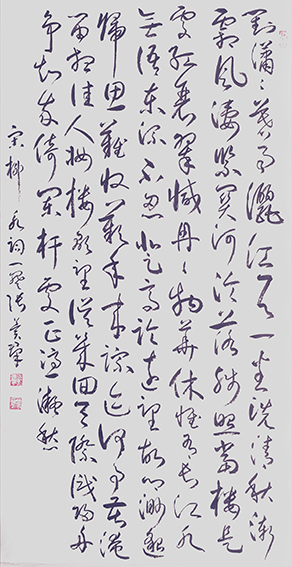 對瀟々暮雨灑江天一番洗清秋漸
霜風淒緊關河冷落殘照當樓是
處紅衰翠減冉々物華休惟有長江水
無語東流不忍登高臨遠望故鄉渺邈
歸思難收歎年來蹤迹何事苦淹
留想佳人妝樓顒望誤幾回天際識歸舟
爭知我倚闌杆處正恁凝愁
宋柳永詞一闋張